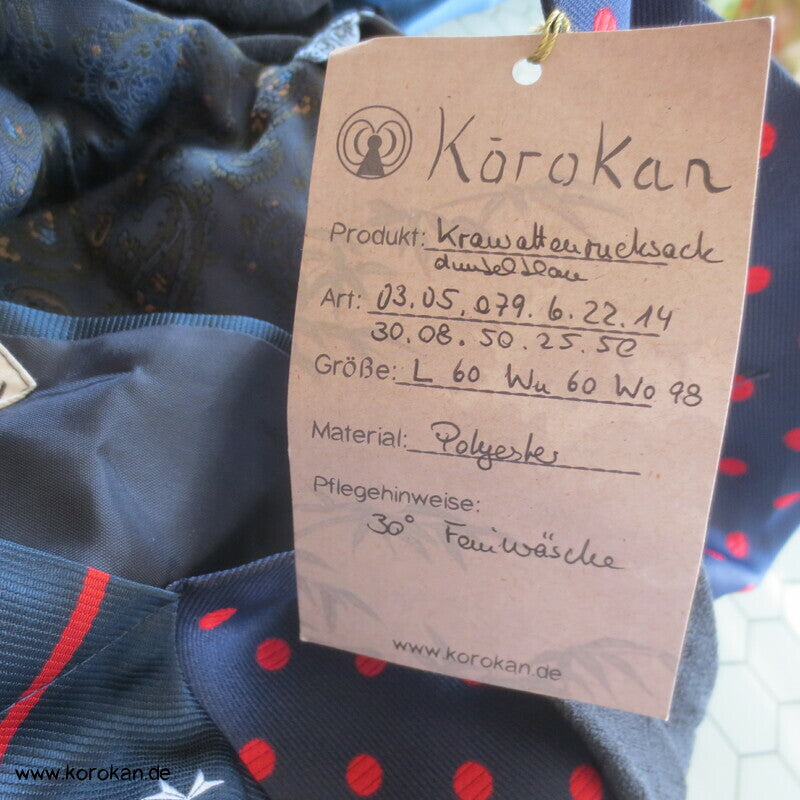 Kōrokan
Produkt: Krawattenrucksack
dunkelblau
Art: 03.05.079.6.22.14
30.08.50.25.50
Größe: L 60 Wu 60 Wo 98
Material: Polyester
Pflegehinweise:
30° Feinwäsche
www.korokan.de
www.korokan.de